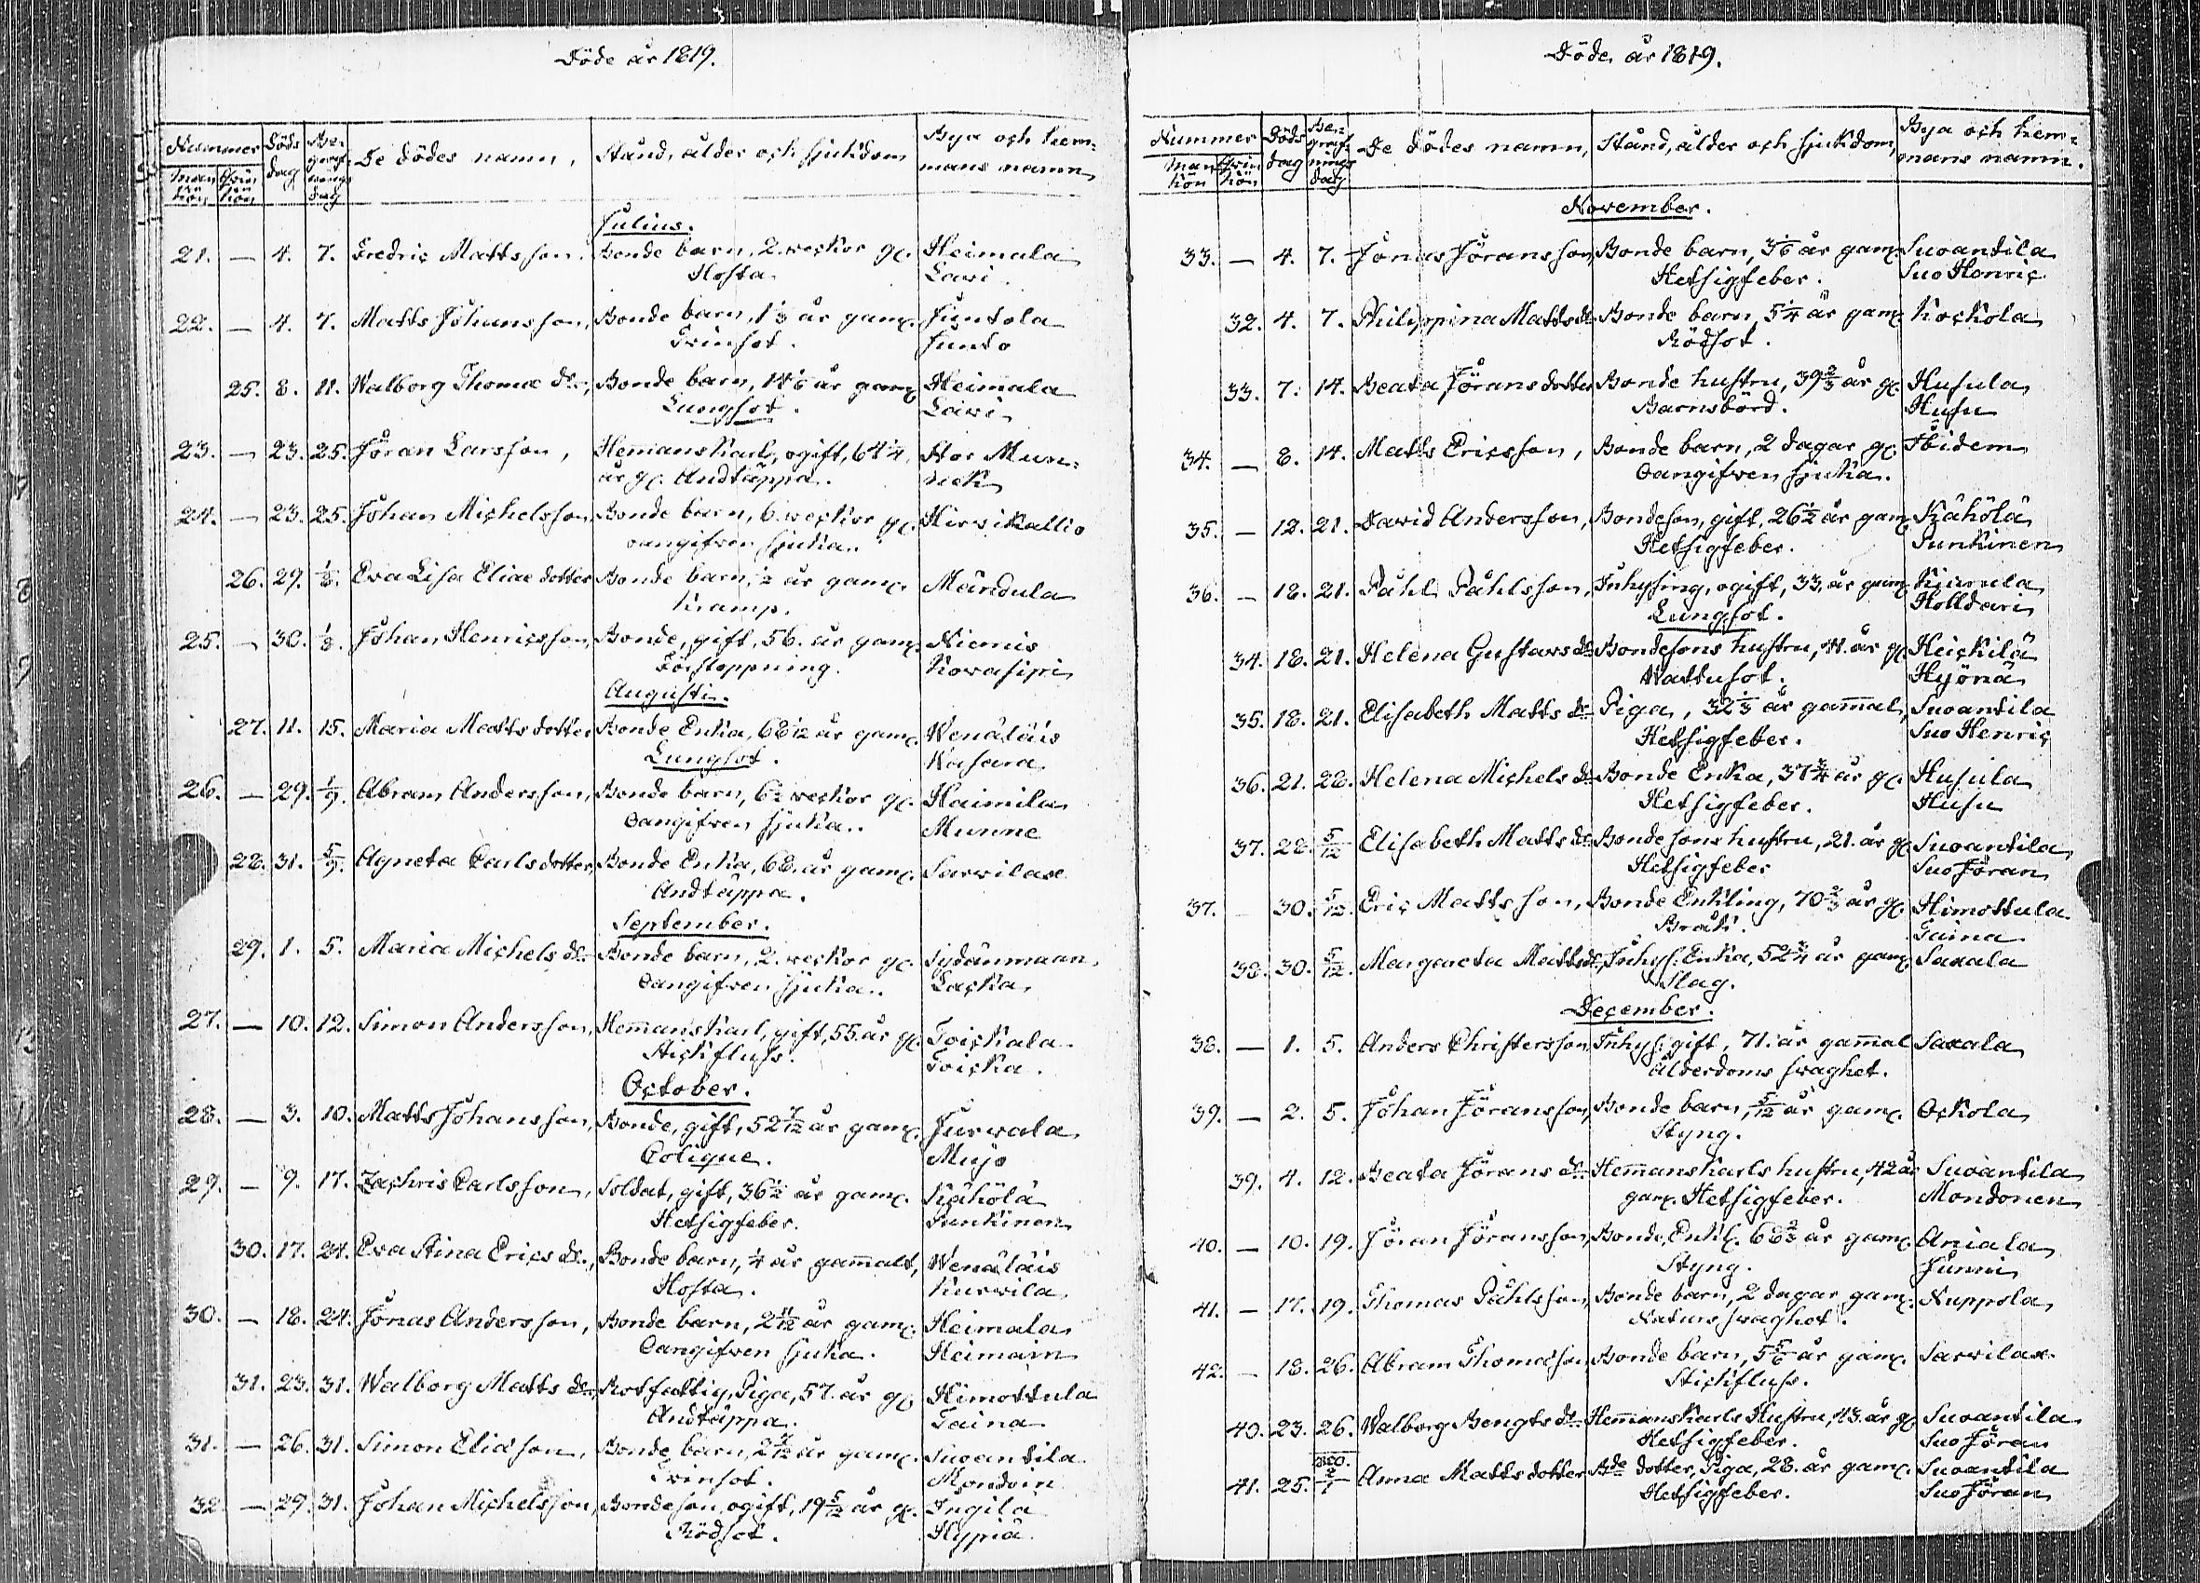 Döde år 1819.
Nummer Döds dag Begrafnings dag De dödes namn, Stånd, ålder och sjukdom Bya och hemmans namn
Man kön Qvin kön
Julius.
21. — 4. 7. Fredric Matts son. Bonde barn, 2. veckor gl. Heimala
Hosta Lavi.
22. — 4. 7. Matts Johansson, Bonde barn, 1 1/3 år gam. Juntola
Tvinsot. Junto
25. 8. 11. Walborg Thomæ dr., Bonde barn, år gam. Heimala
Lungsot. Lavi
23. — 23. 25. Jöran Larsson, Hemanskarl, ogift, 64 1/4 Stor Mun-
år gl. Andtäppa. nick
24. — 23. 25. Johan Michelsson Bonde barn, 6. veckor gl. Hirvikallio
oangifven sjuka.
26. 29. 1/8. Eva Lisa Eliae dotter Bonde barn, 1/2 år gam. Mändula
Kramp.
25. — 30. 1/8. Johan Henricsson, Bonde, gift, 56. år gam. Niemis
Förstoppning. Kovasipi
Augusti.
27. 11. 15. Maria Matts dotter Bonde Enka, år gam. Wenäläis
Lungsot. Wasara
26. — 29. 1/9. Abram Andersson, Bonde barn, 6 1/2 veckor gl. Haimila
Oangifven sjuka. Munne
28. 31. 5/9. Agneta Carls dotter, Bonde Enka, 68. år gam. Sarvilax
Andtäppa.
September.
29. 1. 5. Maria Michels dr Bonde barn, 2. veckor gl. Sydänmaan
Oangifven sjuka. Lacka
27. — 10. 12. Simon Andersson, Hemanskarl, gift, 55. år gl. Toickala
Stickfluss. Toicka.
October.
28. — 3. 10. Matts Johansson, Bonde, gift, 52 7/12 år gam. Jurvala
Colique. Mujo
29. — 9. 17. Zachris Carlsson, Soldat, gift, 36 1/2 år gam. Kähölä
Hetsigfeber. Sunkinen
30. 17. 24. Eva Stina Erics dr., Bonde barn, 1/4 år gamalt, Wenäläis
Hosta. Kurvila
30. — 18. 24. Jonas Andersson, Bonde barn, 2 11/12 år gam. Heimala
Oangifven sjuka. Heimain
31. 23. 31. Walborg Matts dr., Rotfattig, Piga, 57. år gl. Himottula
Andtäppa. Taina
31. — 26. 31. Simon Eliæson, Bonde barn, 2 7/12 år gam. Suoantila
Tvinsot. Mondoin
32. — 29. 31. Johan Michelsson, Bondeson, ogift, 19 5/12 år gl. Ingila
Rödsot. Hypiä
Döde år 1819.
Nummer Döds dag Begrafnings dag De dödes namn, Stånd, ålder och sjukdom, Bya och hemmans namn.
Man kön Qvin kön
November.
33. — 4. 7. Jonas Jöransson, Bonde barn, 3 1/6 år gam. Suoantila
Hetsigfeber. Suo Henric
32. 4. 7. Philippina Matts dr Bonde barn, 5 1/4 år gam. Kockola
Rödsot.
33. 7. 14. Beata Jörans dotter Bonde hustru, 39 2/3 år gl. Husula
Barnsbörd. Husu
34. — 8. 14. Matts Ericsson, Bonde barn, 2 dagar gl. Ibidem
Oangifven sjuka.
35. — 12. 21. David Andersson, Bondeson, gift, 26 1/2 år gam. Kähölä
Hetsigfeber. Sunkinen
36. — 18. 21. Påhl Påhlsson, Inhysing, ogift, 33. år gam. Kiamila
Lungsot. Holldari
34. 18. 21. Helena Gustavs dr Bondesons hustru, år gl. Heickilä
Wattusot. Hyönä
35. 18. 21. Elisabeth Matts dr Piga, 32 1/3 år gamal, Suoantila
Hetsigfeber. Suo Henric
36. 21. 28. Helena Michels dr Bonde Enka, 37 3/4 år gl. Husula
Hetsigfeber. Husu
37. 28. 5/12 Elisabeth Matts dr Bonde sons hustru, 21. år gl. Suoantila
Hetsigfeber Suo Jöran
37. — 30. 5/12. Eric Matts son, Bonde Enkling, 70 2/3 år gl. Himottula
Bråck. Taina
38. 30. 5/12. Margareta Matts dr, Inhys. Enka, 52 3/4 år gam. Saxala
Slag.
December.
38. — 1. 5. Anders Christersson, Inhys. gift, 71. år gamal Saxala
Ålderdoms svaghet.
39. — 2. 5. Johan Jöransson, Bonde barn, 5/12 år gam. Ockola
Styng.
39. 4. 12. Beata Jörans dr Hemanskarls hustru, 42 år Suoantila
gam. Hetsigfeber. Mondonen
40. — 10. 19. Jöran Jöransson, Bonde, Enkl. 68 2/3 år gam. Aniala
Styng. Junni
41. — 17. 19. Thomas Påhlsson, Bonde barn, 2 dagar gam. Nuppola
Naturs svaghet.
42. — 18. 26. Abram Thomæson, Bonde barn, 5 5/6 år gam. Sarvilax
Stickfluss.
40. 23. 26. Walborg Bengts dr Hemanskarls Hustru, 43. år gl. Suoantila
Hetsigfeber. Suo Jöran
41. 25. 1820. 2/1 Anna Matts dotter Bde dotter, Piga, 28. år gam. Suoantila
Hetsigfeber. Suo Jöran